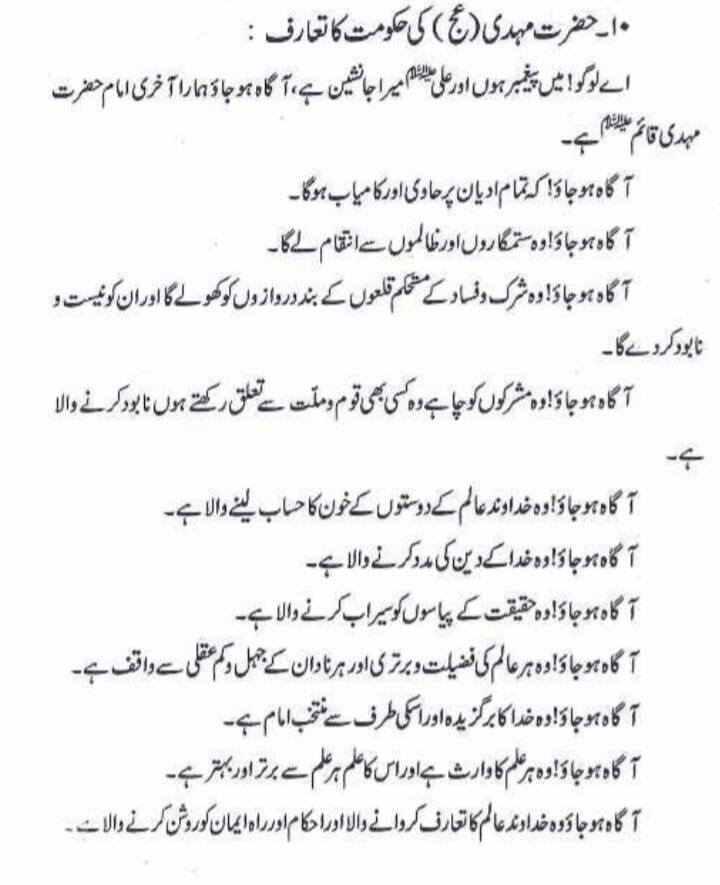 ۱۰۔ حضرت مہدی (عج) کی حکومت کا تعارف :
اے لوگو! میں پیغمبر ہوں اور علی علیہ السلام میرا جانشین ہے، آگاہ ہو جاؤ ہمارا آخری امام حضرت
مہدی قائم علیہ السلام ہے۔
آگاہ ہو جاؤ! کہ تمام ادیان پر حاوی اور کامیاب ہوگا۔
آگاہ ہو جاؤ! وہ ستمگاروں اور ظالموں سے انتقام لے گا۔
آگاہ ہو جاؤ! وہ شرک و فساد کے مستحکم قلعوں کے بند دروازوں کو کھولے گا اور ان کو نیست و
نابود کر دے گا۔
آگاہ ہو جاؤ! وہ مشرکوں کو چاہے وہ کسی بھی قوم و ملّت سے تعلق رکھتے ہوں نابود کرنے والا
ہے۔
آگاہ ہو جاؤ! وہ خداوند عالم کے دوستوں کے خون کا حساب لینے والا ہے۔
آگاہ ہو جاؤ! وہ خدا کے دین کی مدد کرنے والا ہے۔
آگاہ ہو جاؤ! وہ حقیقت کے پیاسوں کو سیراب کرنے والا ہے۔
آگاہ ہو جاؤ! وہ ہر عالم کی فضیلت و برتری اور ہر نادان کے جہل و کم عقلی سے واقف ہے۔
آگاہ ہو جاؤ! وہ خدا کا برگزیدہ اور اسکی طرف سے منتخب امام ہے۔
آگاہ ہو جاؤ! وہ ہر علم کا وارث ہے اور اس کا علم ہر علم سے برتر اور بہتر ہے۔
آگاہ ہو جاؤ وہ خداوند عالم کا تعارف کروانے والا اور احکام اور راہ ایمان کو روشن کرنے والا ہے۔